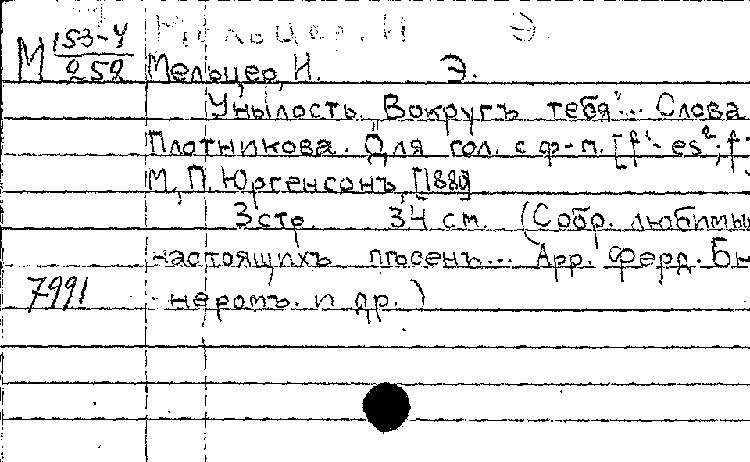 Мельцер, И. Э.
М 153-4/252
Мельцер, И. Э.
Унылость. "Вокругъ тебя"... Слова
Плотникова. Для гол. с ф-п. [f¹-es²; f-
М., П. Юргенсонъ, [1889]
3 стр. 34 см. (Собр. любимы
настоящихъ пѣсенъ... Арр. Ферд. Бю
7991 неромъ. и др.)